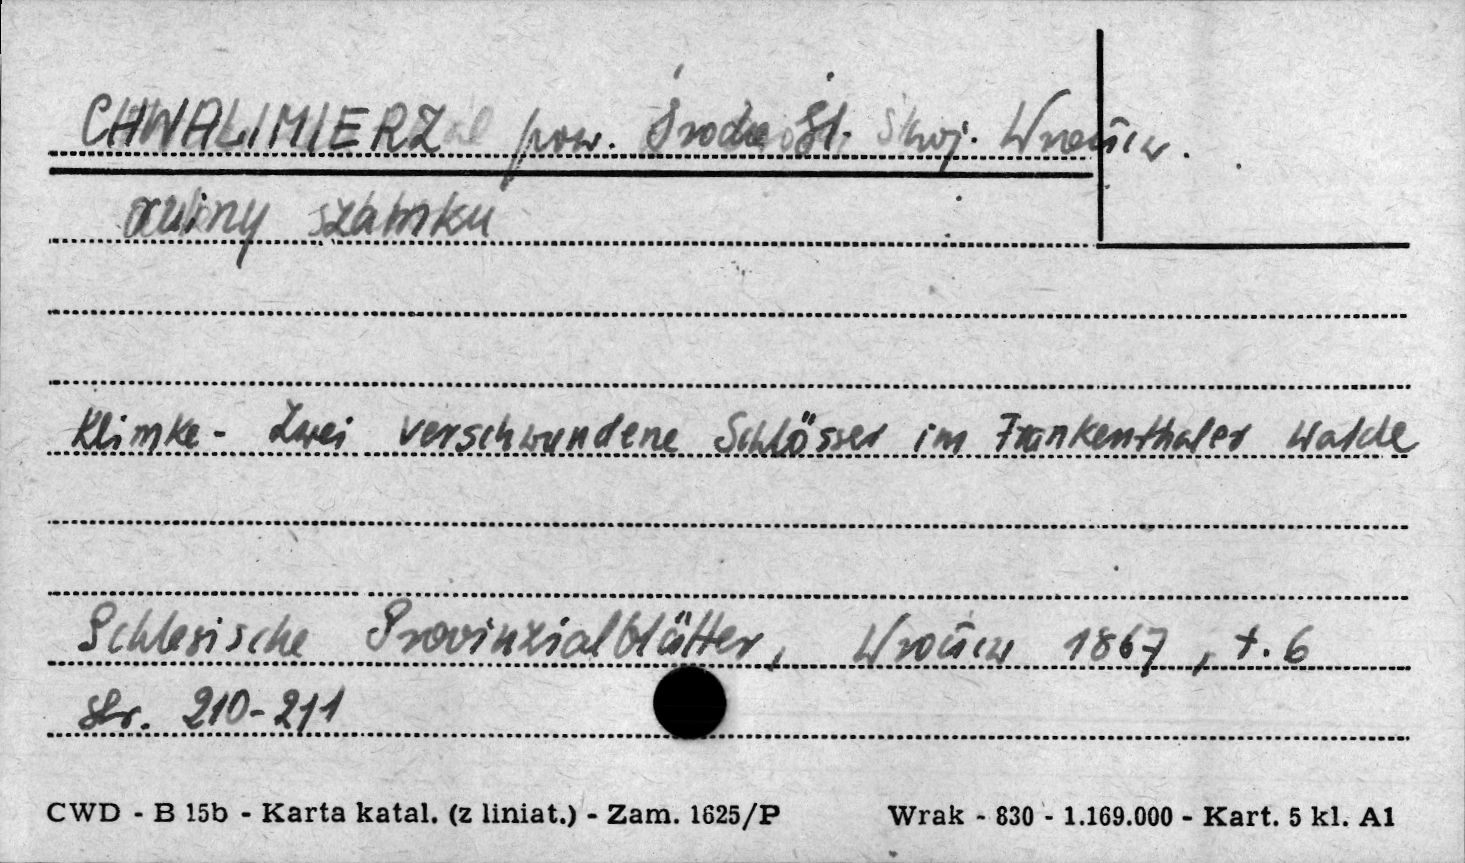 CHWALIMIERZ pow. Środa Śl. woj. Wrocław.
ruiny szamku
Klimke - Zwei verschwundene Schlösser im Frankenthaler Walde
Schlesische Provinzialblätter, Wrocław 1867, t. 6
str. 210-211
CWD - B 15b - Karta katal. (z liniat.) - Zam. 1625/P Wrak - 830 - 1.169.000 - Kart. 5 kl. A1